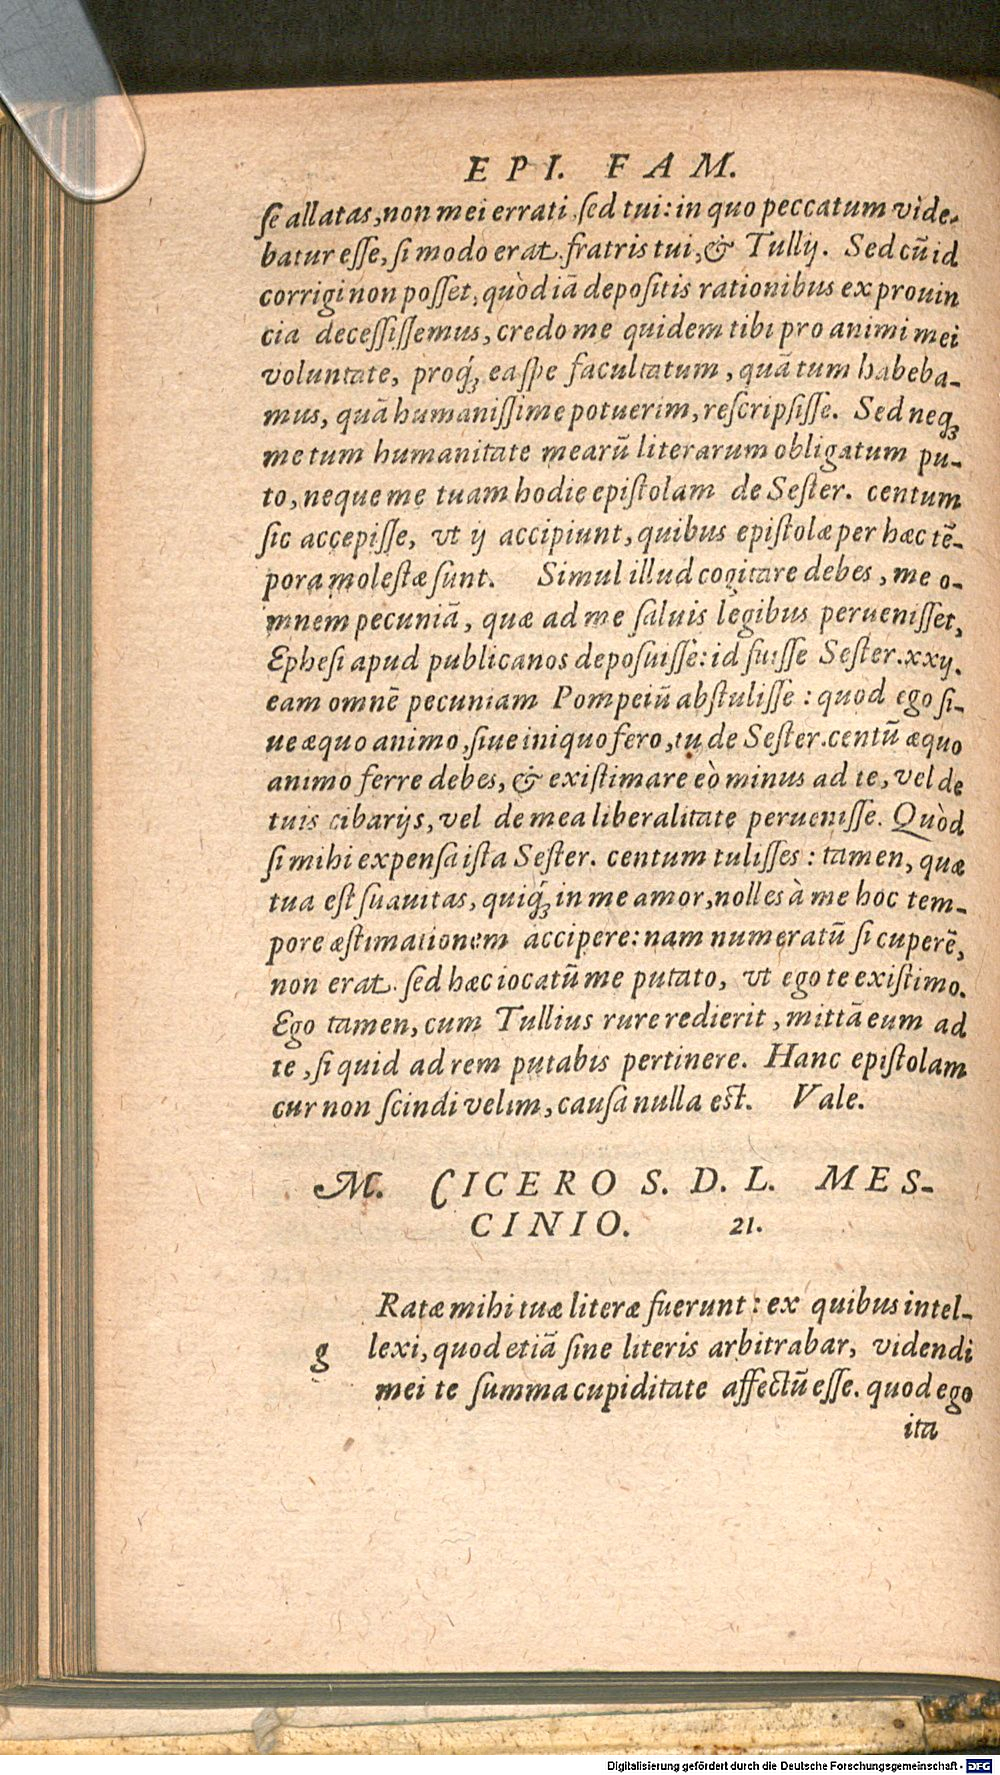 EPI. FAM.
ſe allatas, non mei errati, ſed tui: in quo peccatum vide-
batur eſſe, ſi modo erat, fratris tui, & Tullij. Sed cũ id
corrigi non poſſet, quòd iã depoſitis rationibus ex prouin
cia deceſſiſſemus, credo me quidem tibi pro animi mei
voluntate, proq́ꝫ ea ſpe facultatum, quã tum habeba-
mus, quã humaniſſime potuerim, reſcripſiſſe. Sed neqꝫ
me tum humanitate mearũ literarum obligatum pu-
to, neque me tuam hodie epiſtolam de Seſter. centum
ſic accepiſſe, vt ij accipiunt, quibus epiſtolæ per hæc tẽ-
pora moleſtæ ſunt. Simul illud cogitare debes, me o-
mnem pecuniã, quæ ad me ſaluis legibus perueniſſet,
Epheſi apud publicanos depoſuiſſe: id fuiſſe Seſter. xxij.
eam omnẽ pecuniam Pompeiũ abſtuliſſe: quod ego ſi-
ue æquo animo, ſiue iniquo fero, tu de Seſter. centũ æquo
animo ferre debes, & exiſtimare eò minus ad te, vel de
tuis cibarijs, vel de mea liberalitate perueniſſe. Quòd
ſi mihi expenſa iſta Seſter. centum tuliſſes: tamen, quæ
tua eſt ſuauitas, quiq́ꝫ in me amor, nolles à me hoc tem-
pore æſtimationem accipere: nam numeratũ ſi cuperẽ,
non erat. ſed hæc iocatũ me putato, vt ego te exiſtimo.
Ego tamen, cum Tullius rure redierit, mittã eum ad
te, ſi quid ad rem putabis pertinere. Hanc epiſtolam
cur non ſcindi velim, cauſa nulla eſt. Vale.
M. CICERO S. D. L. MES-
CINIO. 21.
Ratæ mihi tuæ literæ fuerunt: ex quibus intel-
g lexi, quod etiã ſine literis arbitrabar, videndi
mei te ſumma cupiditate affectũ eſſe. quod ego
ita
Digitalisierung gefördert durch die Deutsche Forschungsgemeinschaft - DFG